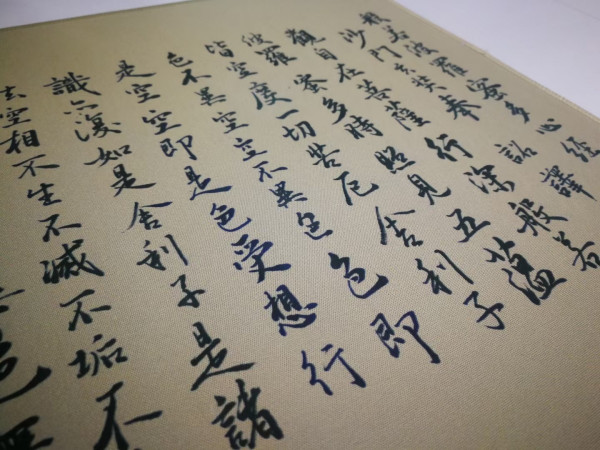 般若波羅蜜多心經
沙門玄奘奉詔譯
觀自在菩薩行深般若
波羅蜜多時照見五蘊
皆空度一切苦厄舍利子
色不異空空不異色色即
是空空即是色受想行
識亦復如是舍利子是諸
法空相不生不滅不垢不
色無